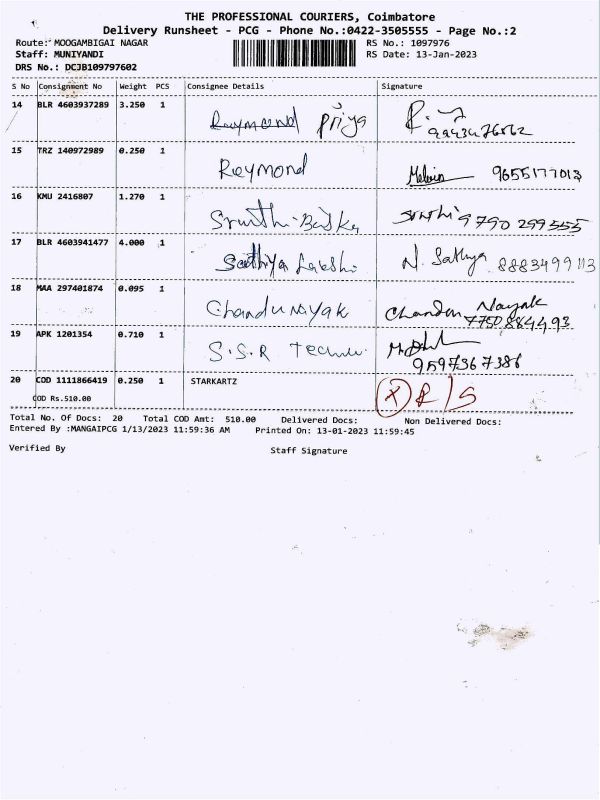 THE PROFESSIONAL COURIERS, Coimbatore
Delivery Runsheet - PCG - Phone No.:0422-3505555 - Page No.:2
Route: MOOGAMBIGAI NAGAR RS No.: 1097976
Staff: MUNIYANDI RS Date: 13-Jan-2023
DRS No.: DCJB109797602
S No Consignment No Weight PCS Consignee Details Signature
14 BLR 4603937289 3.250 1 Raymond Priya
15 TRZ 140972989 0.250 1 Reymond Melvin 9655177013
16 KMU 2416807 1.270 1 Sruthi 9790 299555
17 BLR 4603941477 4.000 1 Sathiya N. Sathya 8883499113
18 MAA 297401874 0.095 1 Chandu Nayak Chandan Nayak
7750884493
19 APK 1201354 0.710 1 S.S.R
9597367386
20 COD 1111866419 0.250 1 STARKARTZ X R/S
COD Rs.510.00
Total No. Of Docs: 20 Total COD Amt: 510.00 Delivered Docs: Non Delivered Docs:
Entered By :MANGAIPCG 1/13/2023 11:59:36 AM Printed On: 13-01-2023 11:59:45
Verified By Staff Signature